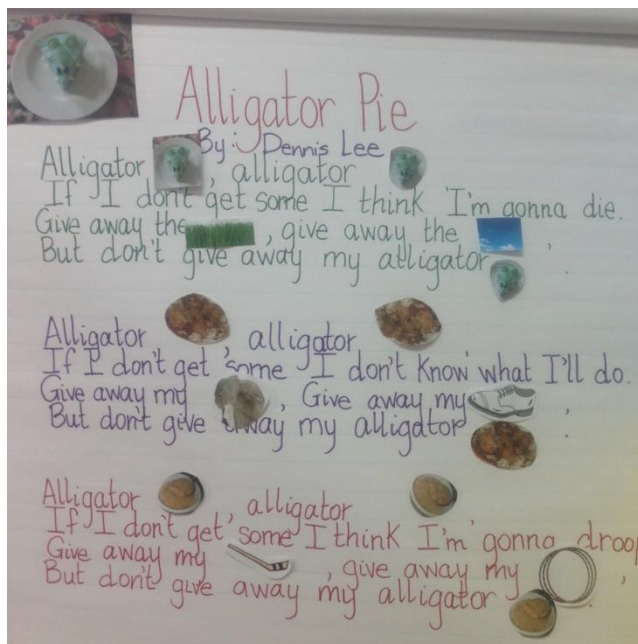 Alligator Pie
By: Dennis Lee
Alligator , alligator
If I don't get some I think I'm gonna die.
Give away the , give away the ,
But don't give away my alligator .
Alligator , alligator
If I don't get some I don't know what I'll do.
Give away my , Give away my ,
But don't give away my alligator .
Alligator , alligator
If I don't get some I think I'm gonna droop
Give away my , give away my ,
But don't give away my alligator .